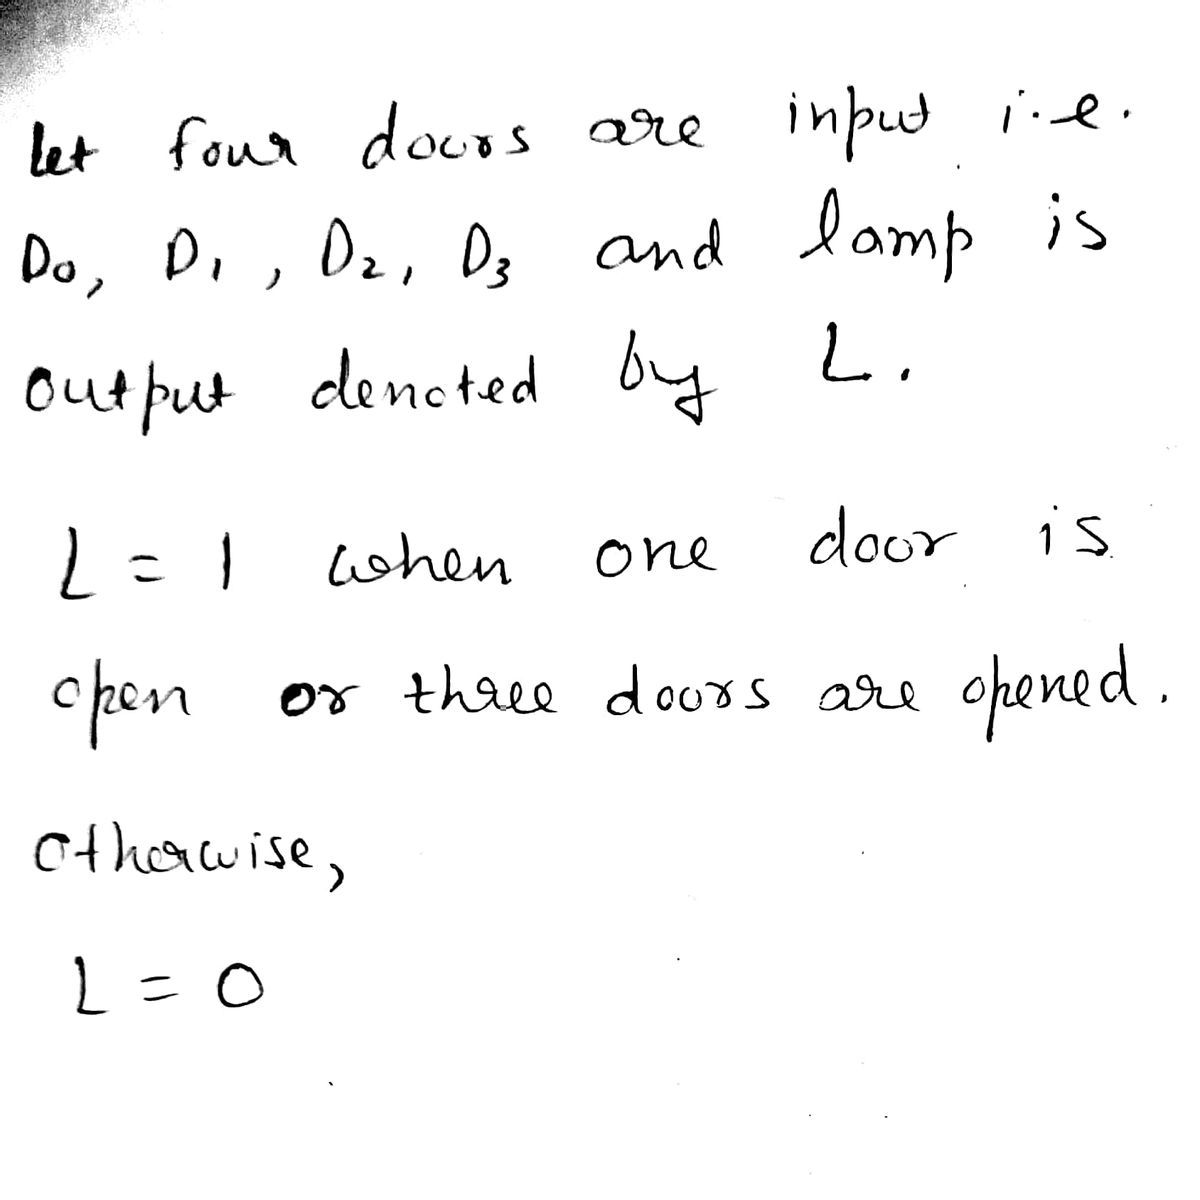 Let four doors are input i.e.
D0, D1, D2, D3 and lamp is
output denoted by L.
L = 1 when one door is
open or three doors are opened.
Otherwise,
L = 0